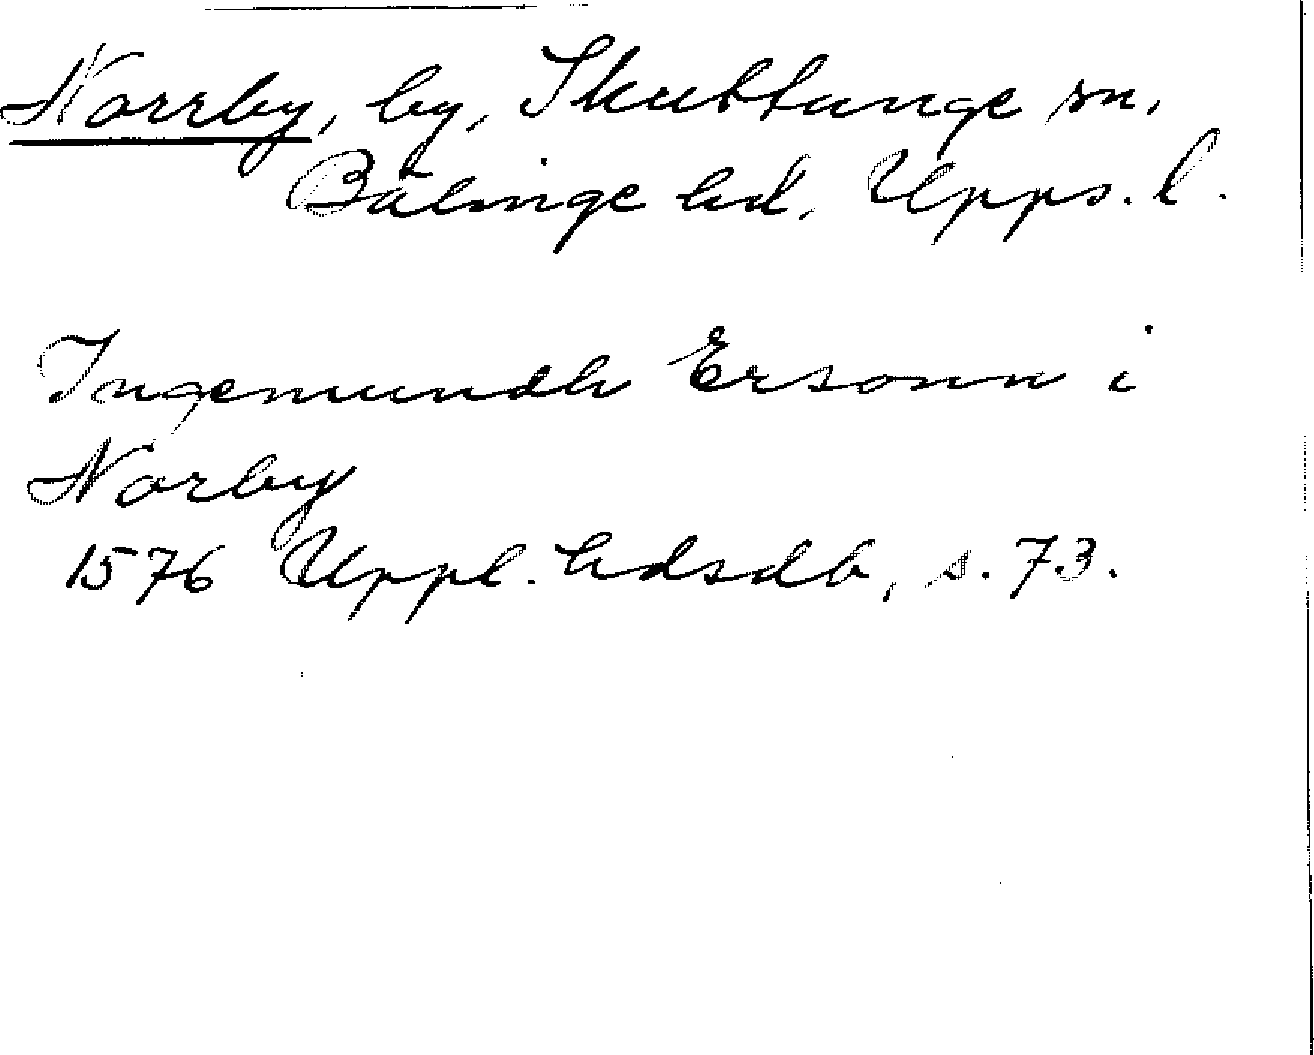 Norrby, by, Skuttunge sn,
Bälinge hd. Upps. l.
Ingemundh Ersonn i
Norby
1576 Uppl. hdsdb, s. 73.